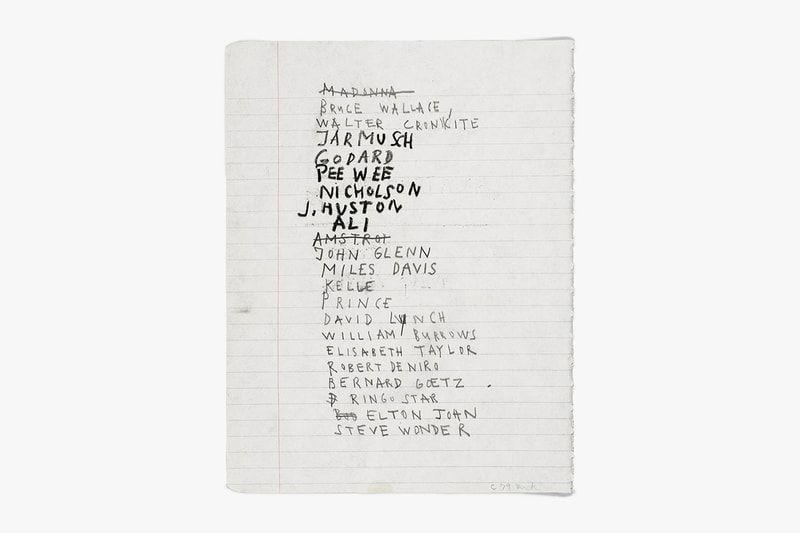 MADONNA
BRUCE WALLACE,
WALTER CRONKITE
JARMUSCH
GODARD
PEE WEE
NICHOLSON
J. HUSTON
ALI
AMSTROT
JOHN GLENN
MILES DAVIS
KELLE
PRINCE
DAVID LYNCH
WILLIAM BURROWS
ELISABETH TAYLOR
ROBERT DENIRO
BERNARD GOETZ .
RINGO STAR
ELTON JOHN
STEVE WONDER